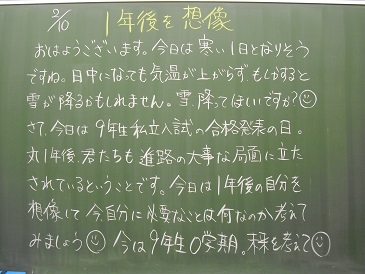 2/10 1年後を想像
おはようございます。今日は寒い1日となりそう
ですね。日中になっても気温が上がらず、もしかすると
雪が降るかもしれません。雪、降ってほしいですか?
さて、今日は9年生私立入試の合格発表の日。
丸1年後、君たちも進路の大事な局面に立た
されているということです。今日は1年後の自分を
想像して今、自分に必要なことは何なのか考えて
みましょう 今は9年生0学期。未来を考えて